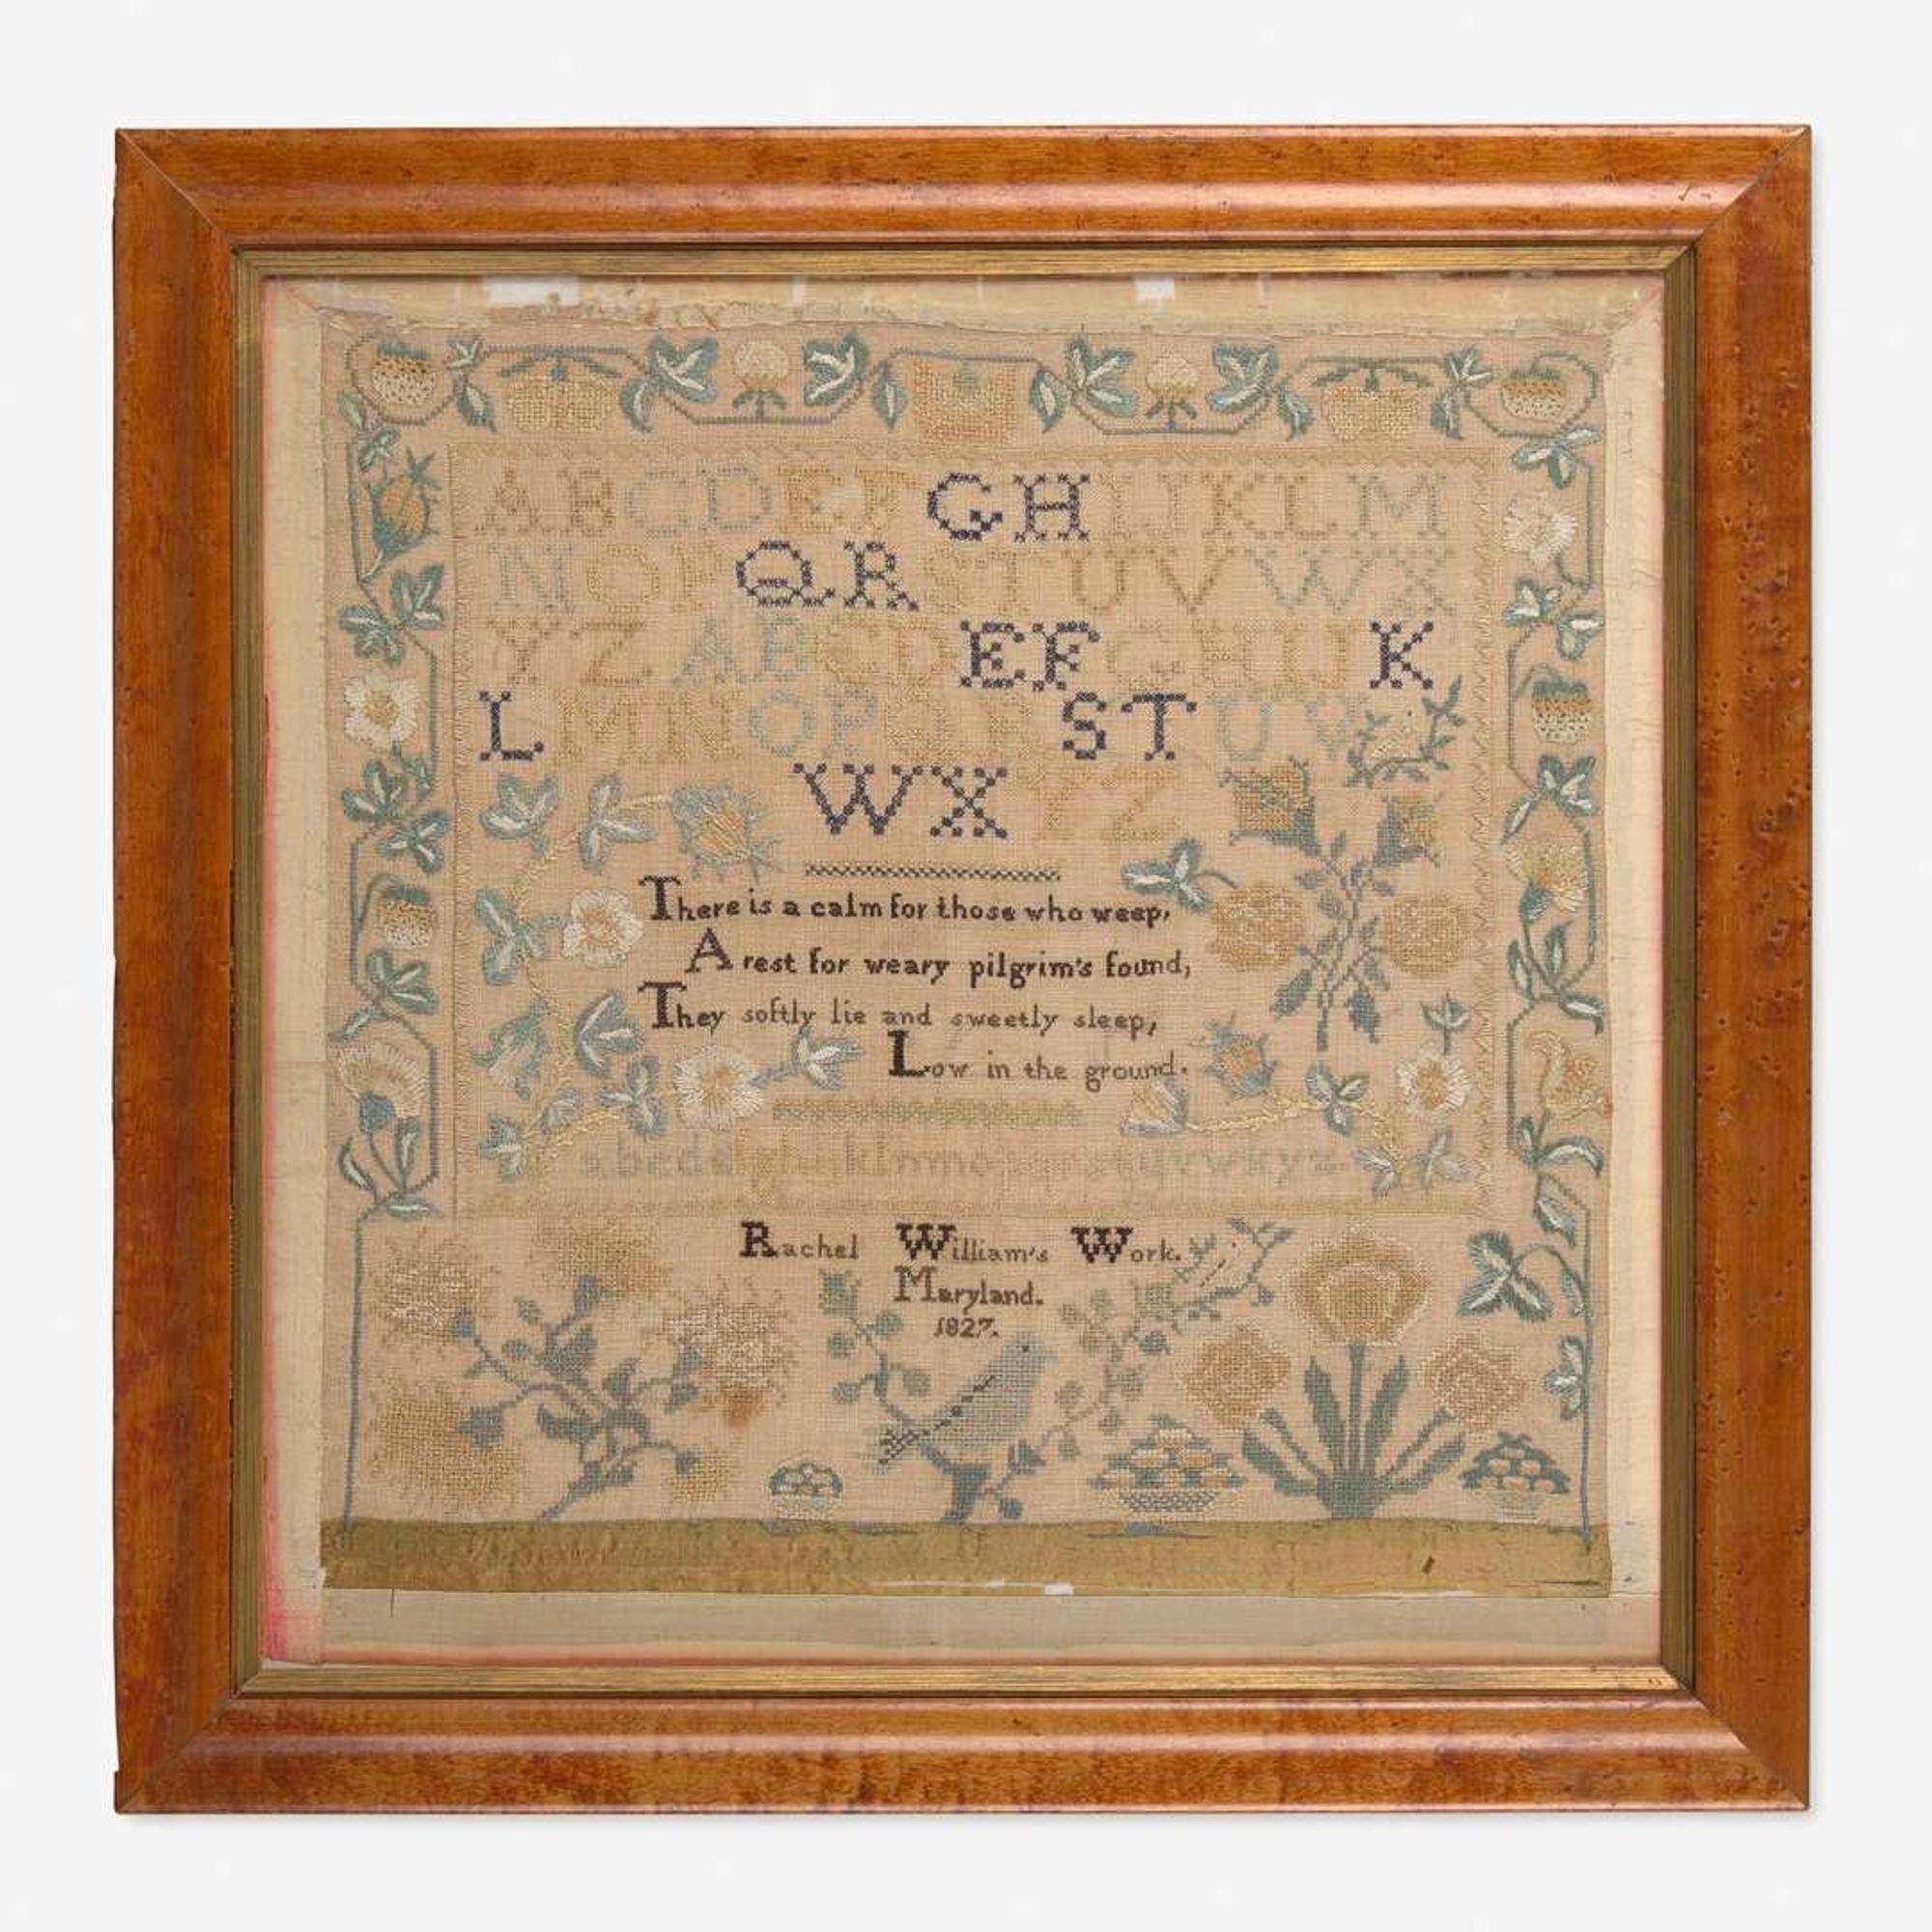 ABCDEFGHIJKLM
NOPQRSTUVWX
YZABCDEFGHIJK
LMNOPQRSTUV
WXYZ
There is a calm for those who weep,
A rest for weary pilgrim's found,
They softly lie and sweetly sleep,
Low in the ground.
abcdefghijklmnopqrstuvwxyz
Rachel William's Work.
Maryland.
1827.